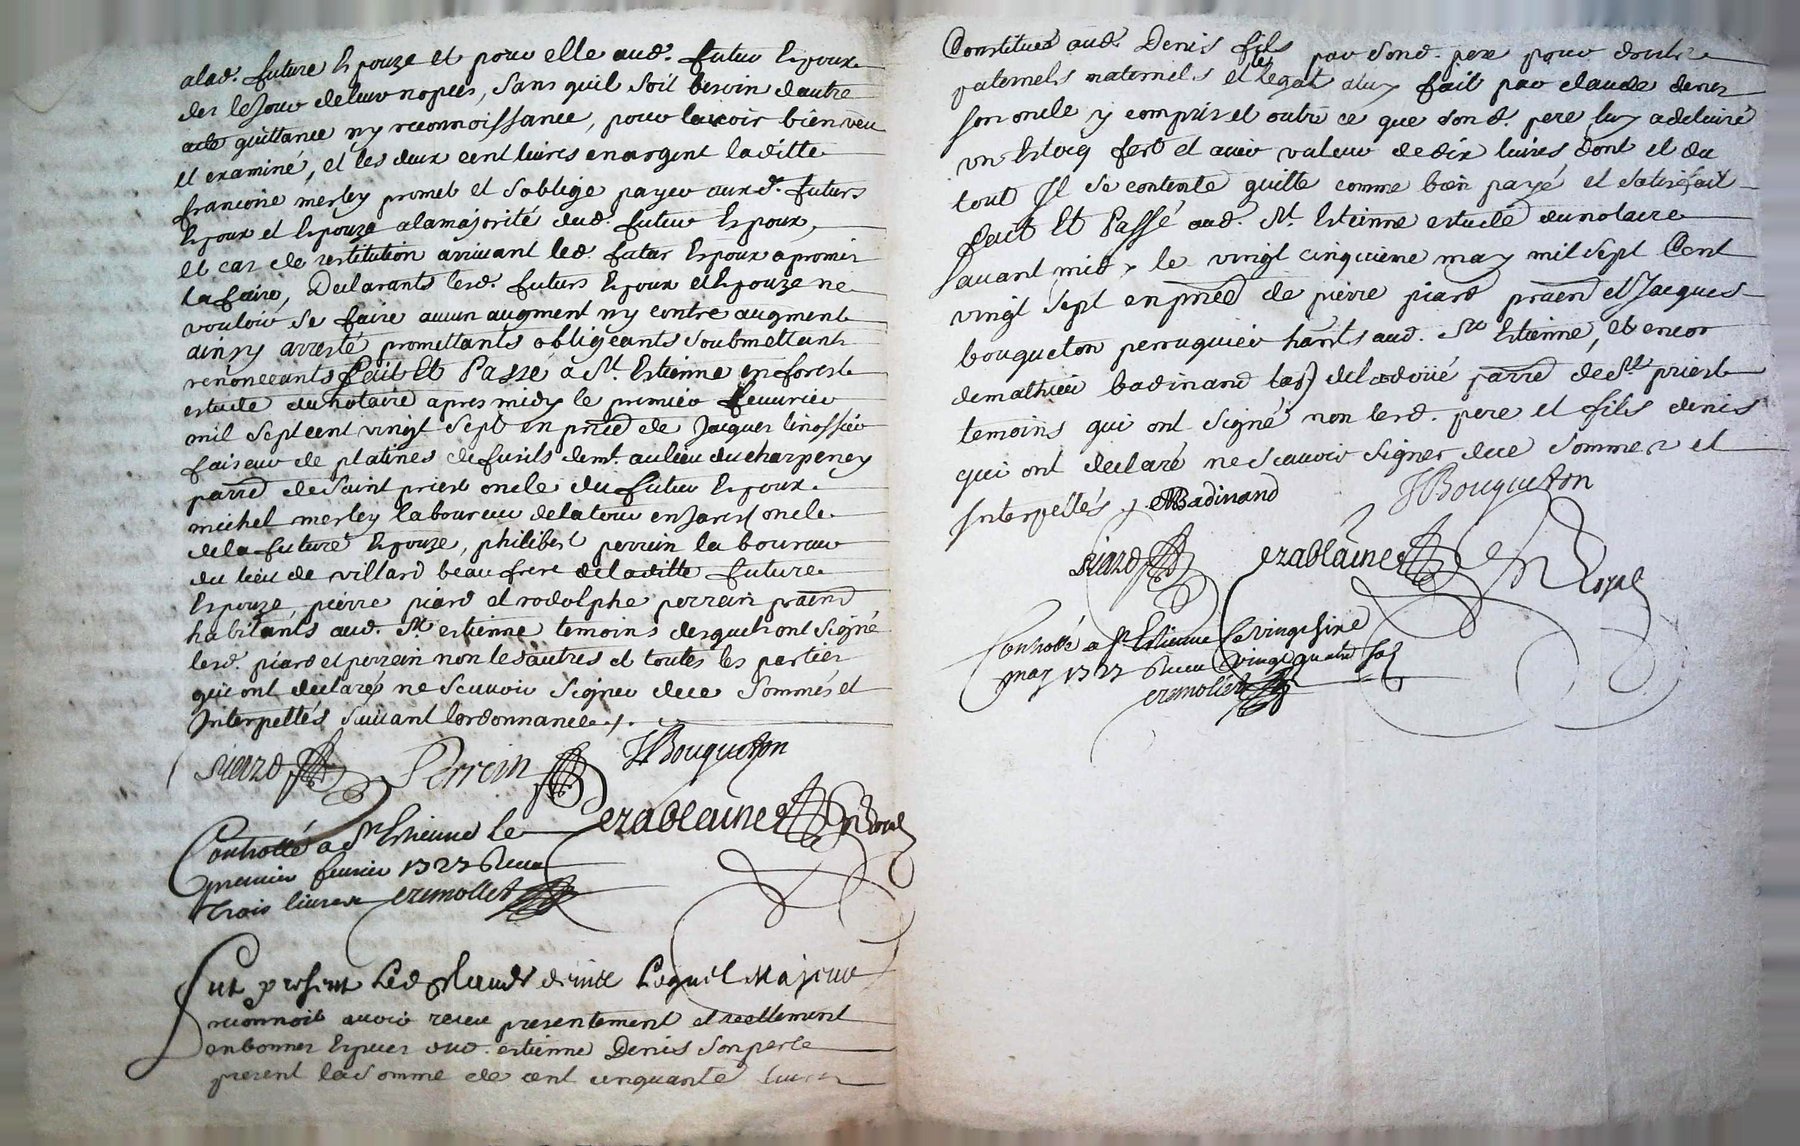 alad. future Epouze et pour elle aud. futur Epoux
des le Jour de leur nopces, sans quil soit besoin dautre
acte quittance ny reconnoissance, pour lavoir bien veu
et examiné, et les deux cent livres en argent laditte
francoise merley promet et soblige payer auxd. futurs
Epoux et Epouze ala majorité dud. futur Epoux,
et cas de restitution arrivant led. futur Epoux a promis
la faire, Declarants lesd. futurs Epoux et Epouze ne
vouloir se faire aucun augment ny contre augment
ainsy arresté promettants obligeants soubmettants
renonceants fait Et Passé a St. Estienne en forest
estude du notaire apres midy le premier feuvrier
mil sept cent vingt sept en pnce de Jacques linossier
faiseur de platines de fusils demt. au lieu du charpeney
parre de saint priest oncle du futur Epoux
michel merley laboureur de latour en Jarest oncle
dela future Epouze, philibert perrein laboureur
du lieu de villard beau frere de laditte future
Epouze, pierre piard et rodolphe perrein praen
habitants aud. St. estienne temoins desquels ont signé
lesd. piard et perrein non les autres et toutes les parties
qui ont declarés ne scavoir signer de ce sommés et
Interpellés suivant lordonnance ./.
piard Perrein JBouqueton
ezablaine
Controllé a St Estienne le
premier feuvrier 1727 Receu
trois livres
fut present led Claude denis Lequel Majeur
reconnoit avoir receu presentement et reellement
en bonnes Especes dud. estienne Denis son pere
present la somme de cent cinquante livres
Constituéz aud. Denis fils par sond. pere pour droits
paternels maternels et le legat aluy fait par claude denis
son oncle y compris et outre ce que sond. pere luy a delivré
un Estoq fert et avier valeur de dix livres, dont et du
tout Il se contente quitte comme bien payé et satisfait
fait Et Passé aud. St. Estienne estude du notaire
avant midy le vingt cinquieme may mil sept Cent
vingt sept en pnce de pierre piard praen et Jacques
bouqueton perruquier hants aud. St Estienne, et encor
de mathieu badinand de ladoüe parre de St. priest
temoins qui ont signé non lesd. pere et fils denis
qui ont declaré ne scavoir signer de ce sommés et
Interpellés ./. MBadinand JBouqueton
piard ezablaine
Controllé a St Estienne le vingt sixe
may 1727 Receu vingt quatre sols